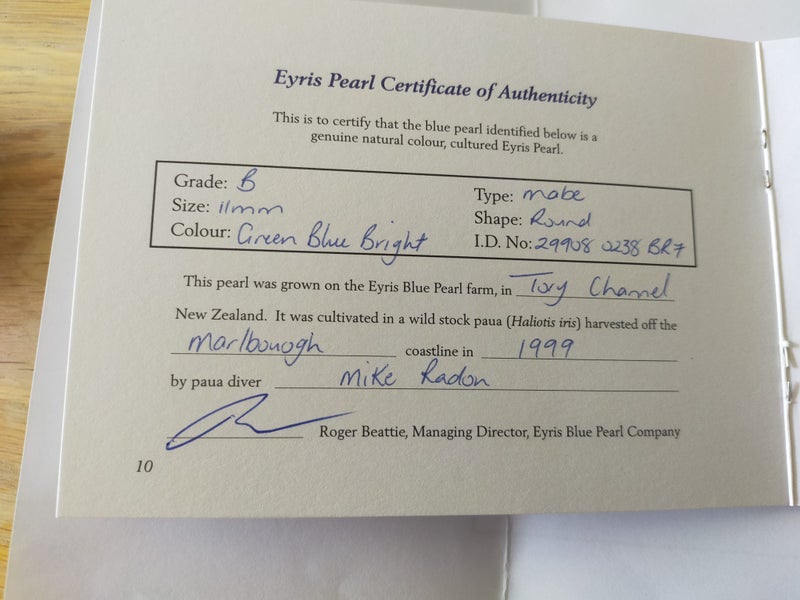 Eyris Pearl Certificate of Authenticity
This is to certify that the blue pearl identified below is a
genuine natural colour, cultured Eyris Pearl.
Grade: B
Size: 11mm
Colour: Green Blue Bright
Type: mabe
Shape: Round
I.D. No: 29908 0238 BR7
This pearl was grown on the Eyris Blue Pearl farm, in Tory Channel
New Zealand. It was cultivated in a wild stock paua (Haliotis iris) harvested off the
Marlborough coastline in 1999
by paua diver Mike Radon
Roger Beattie, Managing Director, Eyris Blue Pearl Company
10